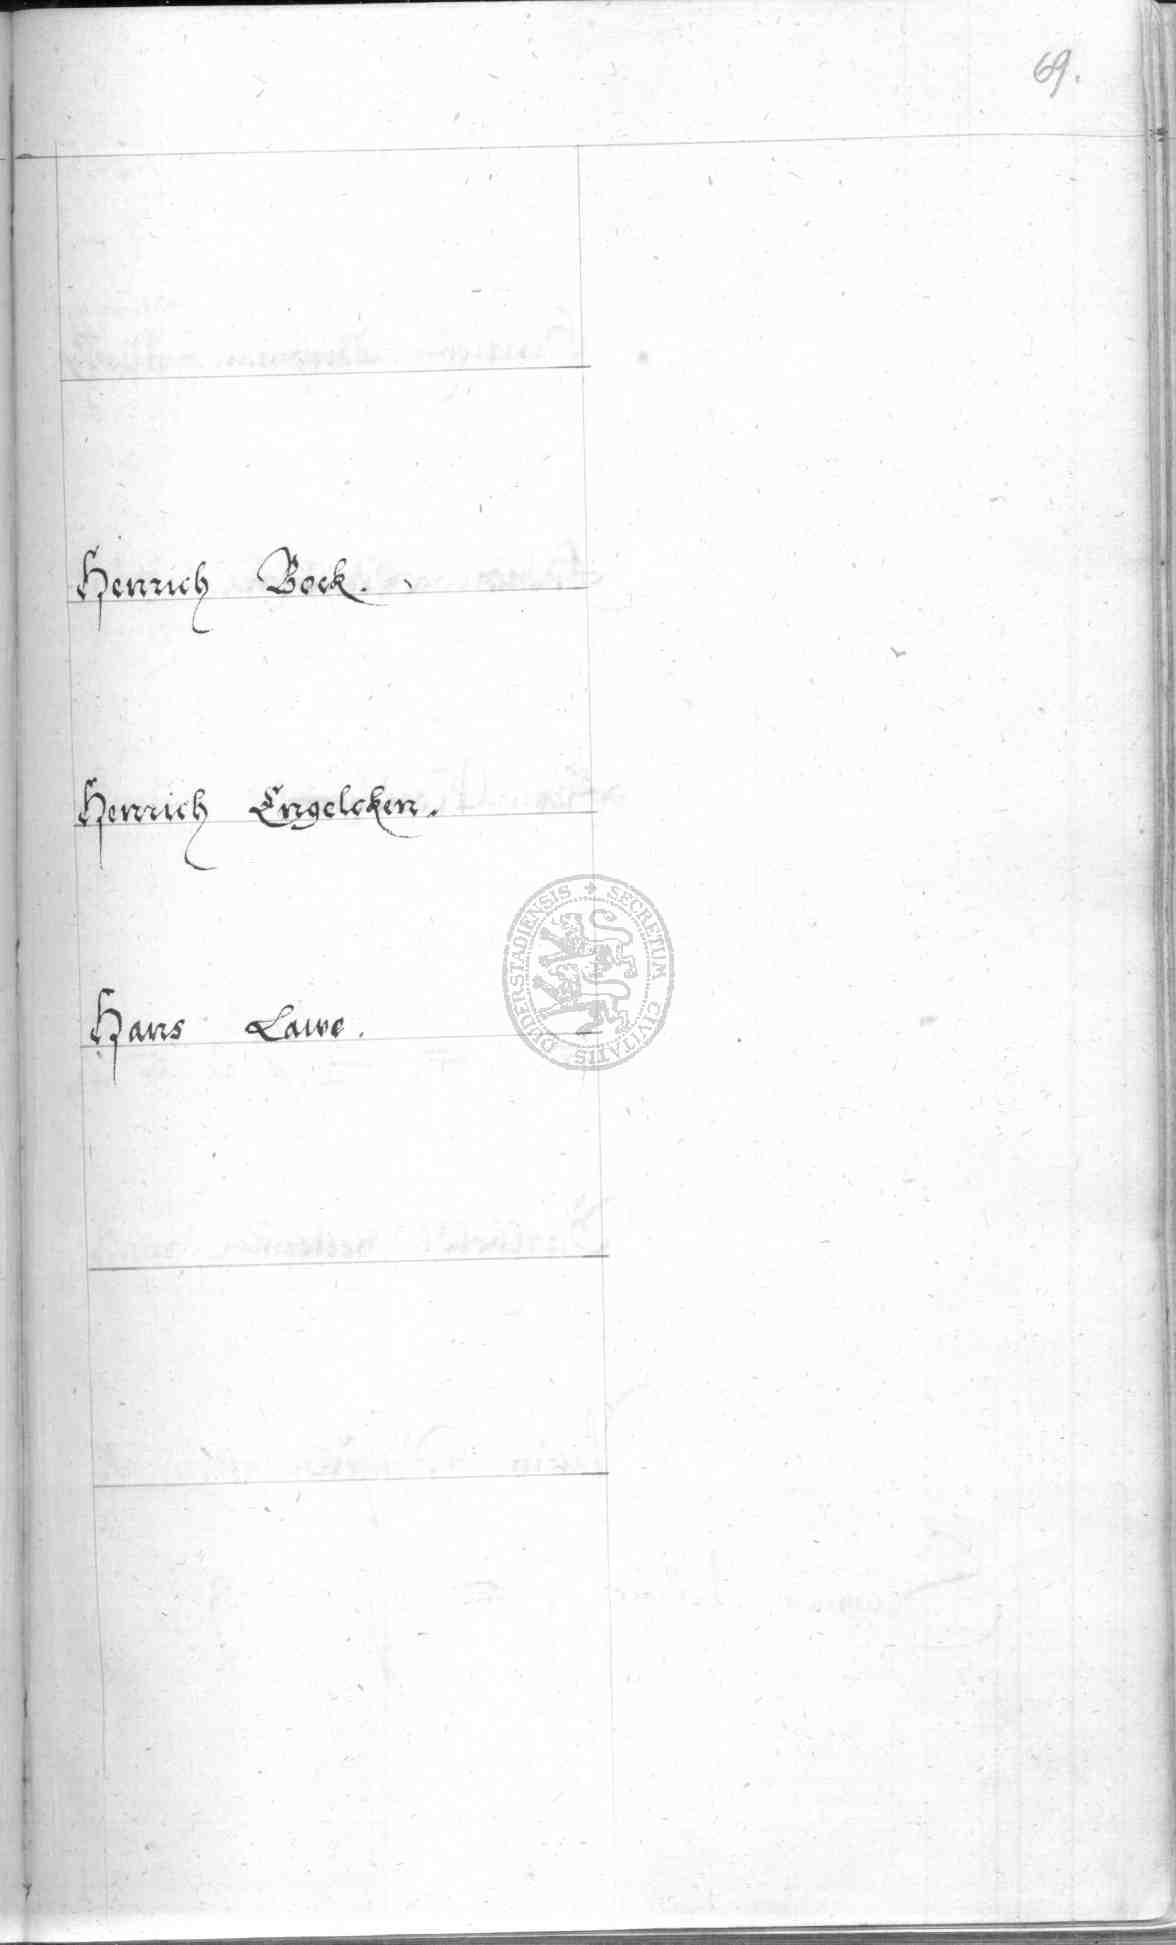 69.
Henrich Bock.
Henrich Engelcken.
SECRETUM CIVITATIS DUDERSTADIENSIS
Hans Lawe.